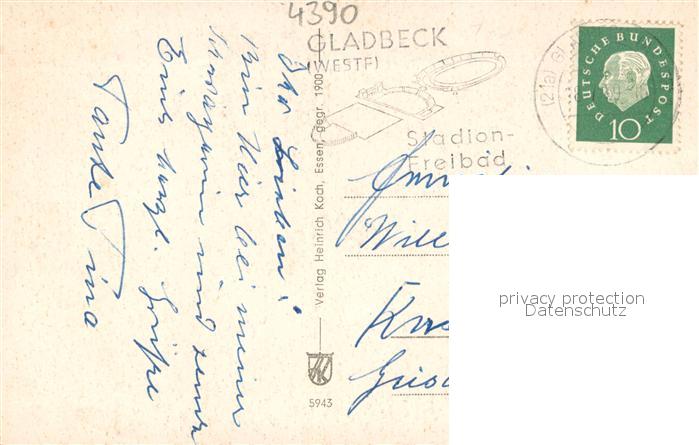 4390
GLADBECK
(WESTF)
Stadion-
Freibad
(21a)
DEUTSCHE BUNDESPOST
10
Ihr Lieben!
Bin hier bei meiner
und
Euch herzl. Grüße
Tante Tina
Verlag Heinrich Koch, Essen, gegr. 1900
5943
Will
privacy protection
Datenschutz